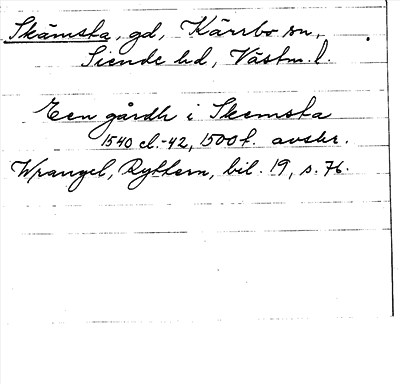 Skämsta, gd, Kärrbo sn,
Siende hd, Västm. l.
Een gårdh i Skemsta
1540 el. -42, 1500t. avskr.
Wrangel, Ryttern, bil. 19, s. 76.